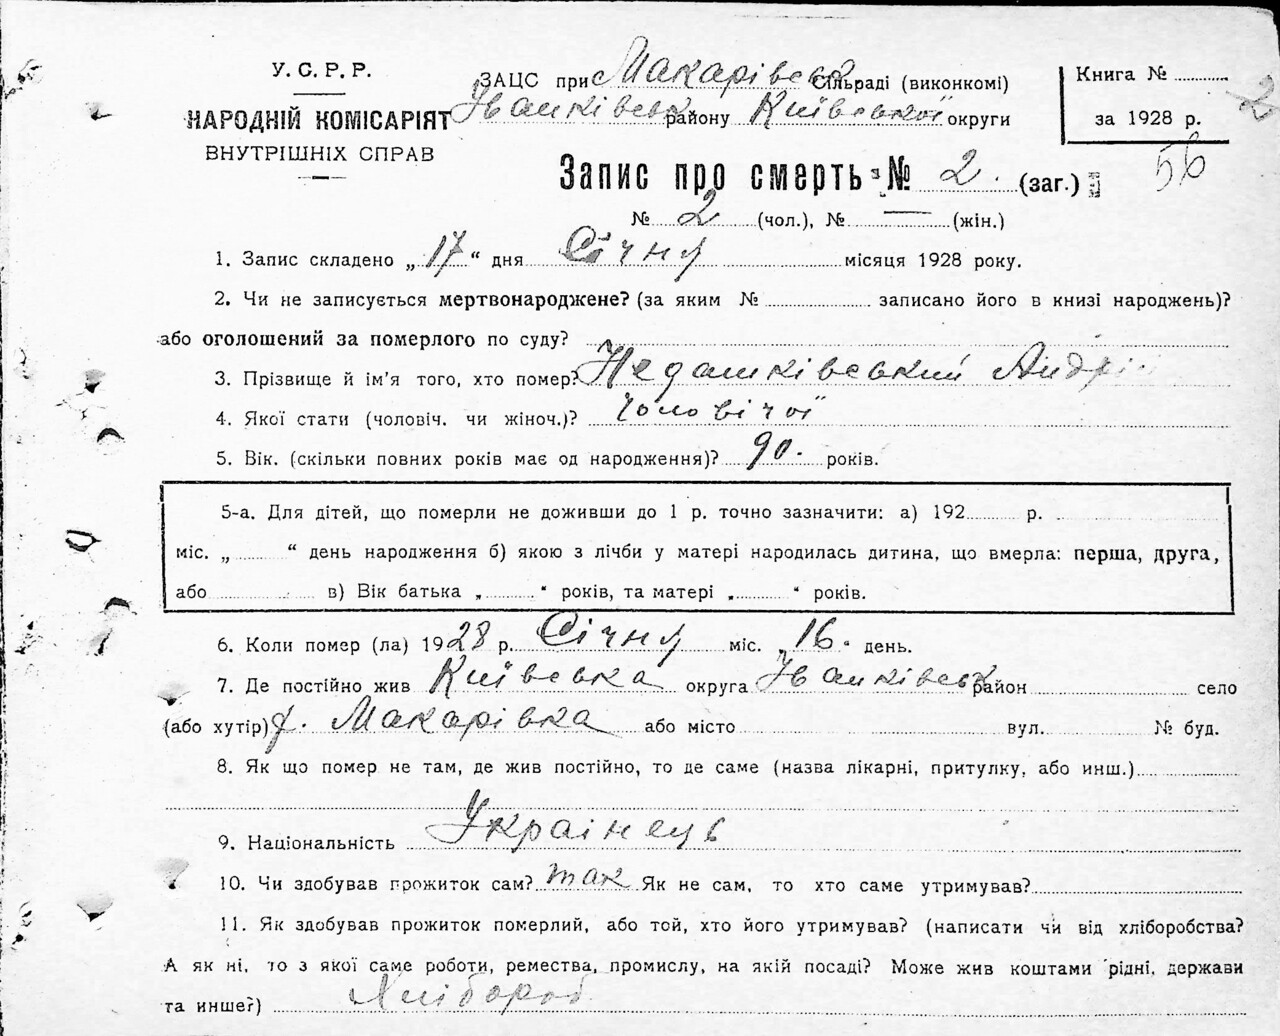 У. С. Р. Р.
НАРОДНІЙ КОМІСАРІЯТ
ВНУТРІШНІХ СПРАВ
ЗАЦС при Макарівськ Сільраді (виконкомі)
Іванківськ району Київської округи
Книга №
за 1928 р.
2
56
Запис про смерть № 2. (заг.)
№ 2 (чол.), № — (жін.)
1. Запис складено „17“ дня Січня місяця 1928 року.
2. Чи не записується мертвонароджене? (за яким № записано його в книзі народжень)?
або оголошений за померлого по суду?
3. Прізвище й ім'я того, хто помер? Недашківський Андрій
4. Якої стати (чоловіч. чи жіноч.)? чоловічої
5. Вік. (скільки повних років має од народження)? 90. років.
5-а. Для дітей, що померли не доживши до 1 р. точно зазначити: а) 192 р.
міс. „ “ день народження б) якою з лічби у матері народилась дитина, що вмерла: перша, друга,
або в) Вік батька „ “ років, та матері „ “ років.
6. Коли помер (ла) 1928 р. Січня міс. „16“ день.
7. Де постійно жив Київська округа Іванківськ район село
(або хутір) Макарівка або місто вул. № буд.
8. Як що помер не там, де жив постійно, то де саме (назва лікарні, притулку, або инш.)
9. Національність Украінець
10. Чи здобував прожиток сам? так Як не сам, то хто саме утримував?
11. Як здобував прожиток померлий, або той, хто його утримував? (написати чи від хліборобства?
А як ні, то з якої саме роботи, ремества, промислу, на якій посаді? Може жив коштами рідні, держави
та инше?) Хлібороб